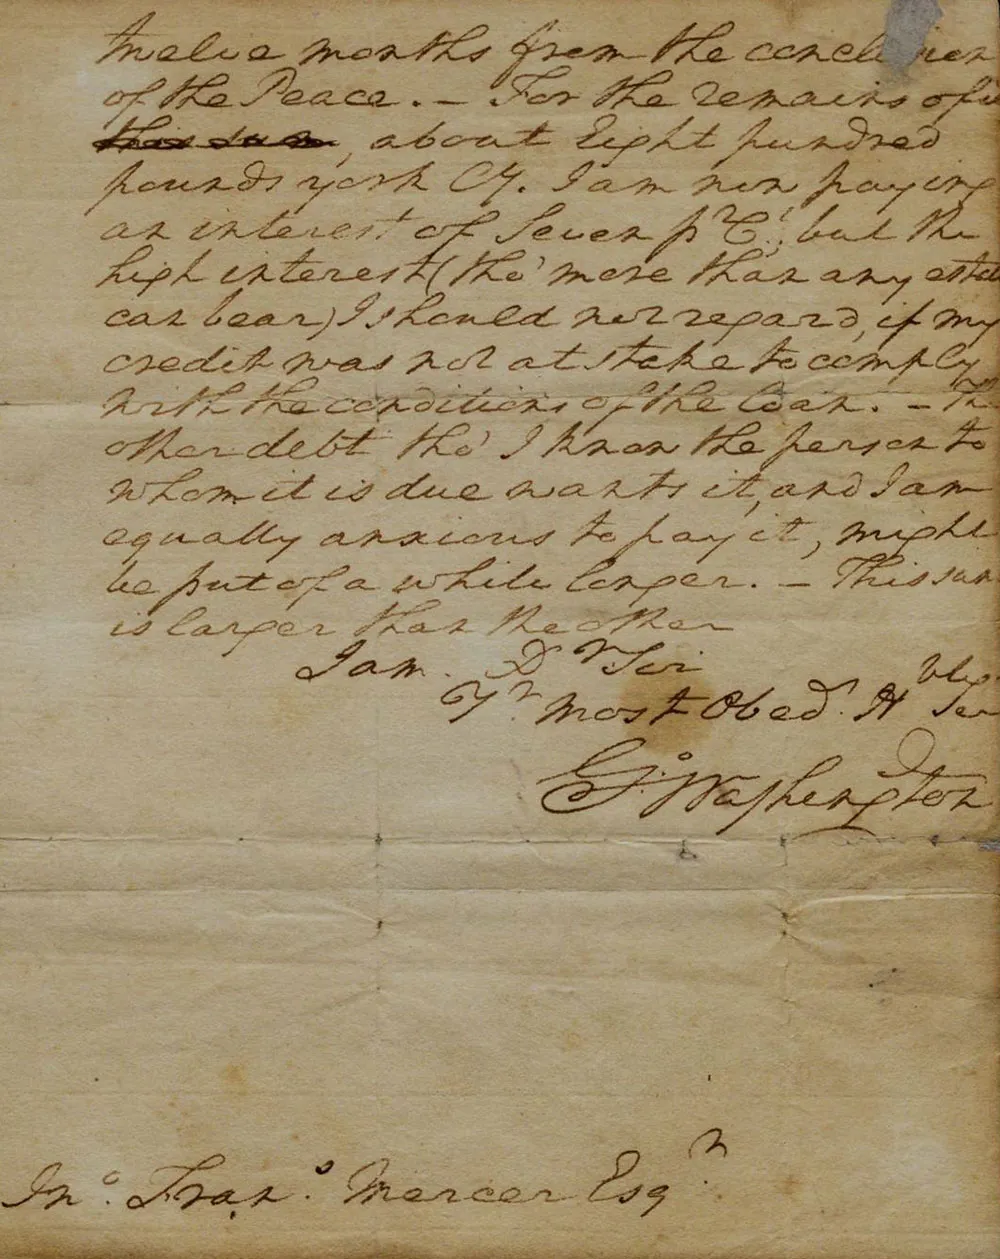 twelve months from the conclusion
of the Peace. – For the remains of it
this sum, about Eight hundred
pounds york Cy. I am now paying
an interest of Seven pr Ct; but the
high interest (tho' more than any estate
can bear) I should not regard, if my
credit was not at stake to comply
with the conditions of the loan. – The
other debt tho' I know the person to
whom it is due wants it, and I am
equally anxious to pay it, might
be put of a while longer. – This sum
is larger than the other
I am. Dr Sir
Yr. most Obedt. Hble
Ser
Go: Washington
Jno. Frans. Mercer Esqr